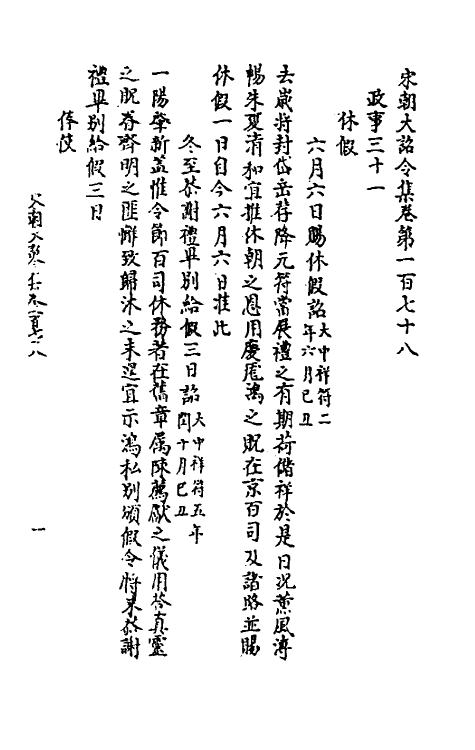 宋朝大詔令集卷第一百七十八
政事三十一
休假
六月六日賜休假詔大中祥符二年六月己丑
去歲將封岱岳荐降元符當展禮之有期荷儲祥於是日況薰風溥
暢朱夏清和宜推休朝之恩用慶厖鴻之貺在京百司及諸路並賜
休假一日自今六月六日准此
冬至恭謝禮畢別給假三日詔大中祥符五年閏十月己丑
一陽肇新蓋惟令節百司休務著在舊章屬陳薦獻之儀用荅真靈
之貺眷齊明之匪懈致歸沐之未遑宜示鴻私別頒假令將來恭謝
禮畢別給假三日
俸伎
一